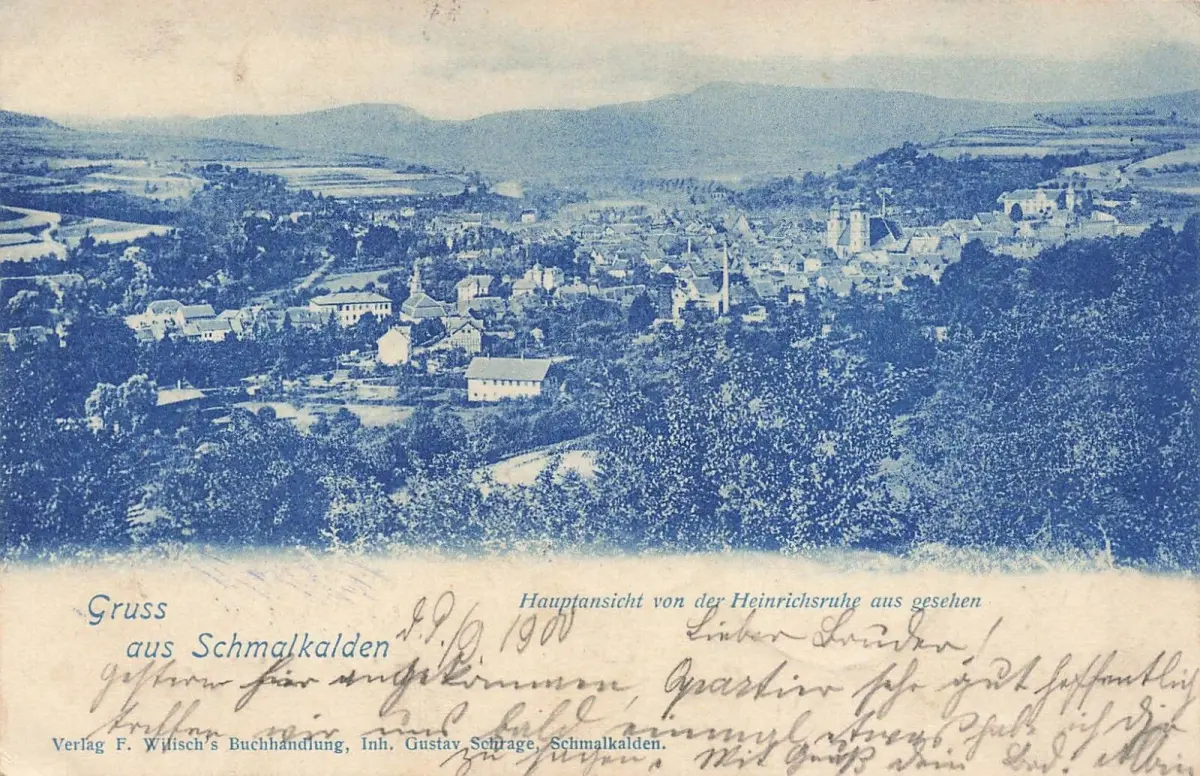 Gruss
aus Schmalkalden
Hauptansicht von der Heinrichsruhe aus gesehen
d. 9/9 1900 Lieber Bruder!
gestern hier angekommen, sehr gut hoffentlich
treffen wir uns bald einmal etwas hab ich dir
zu sagen. Mit Gruß dein
Verlag F. Wilisch's Buchhandlung, Inh. Gustav Schrage, Schmalkalden.